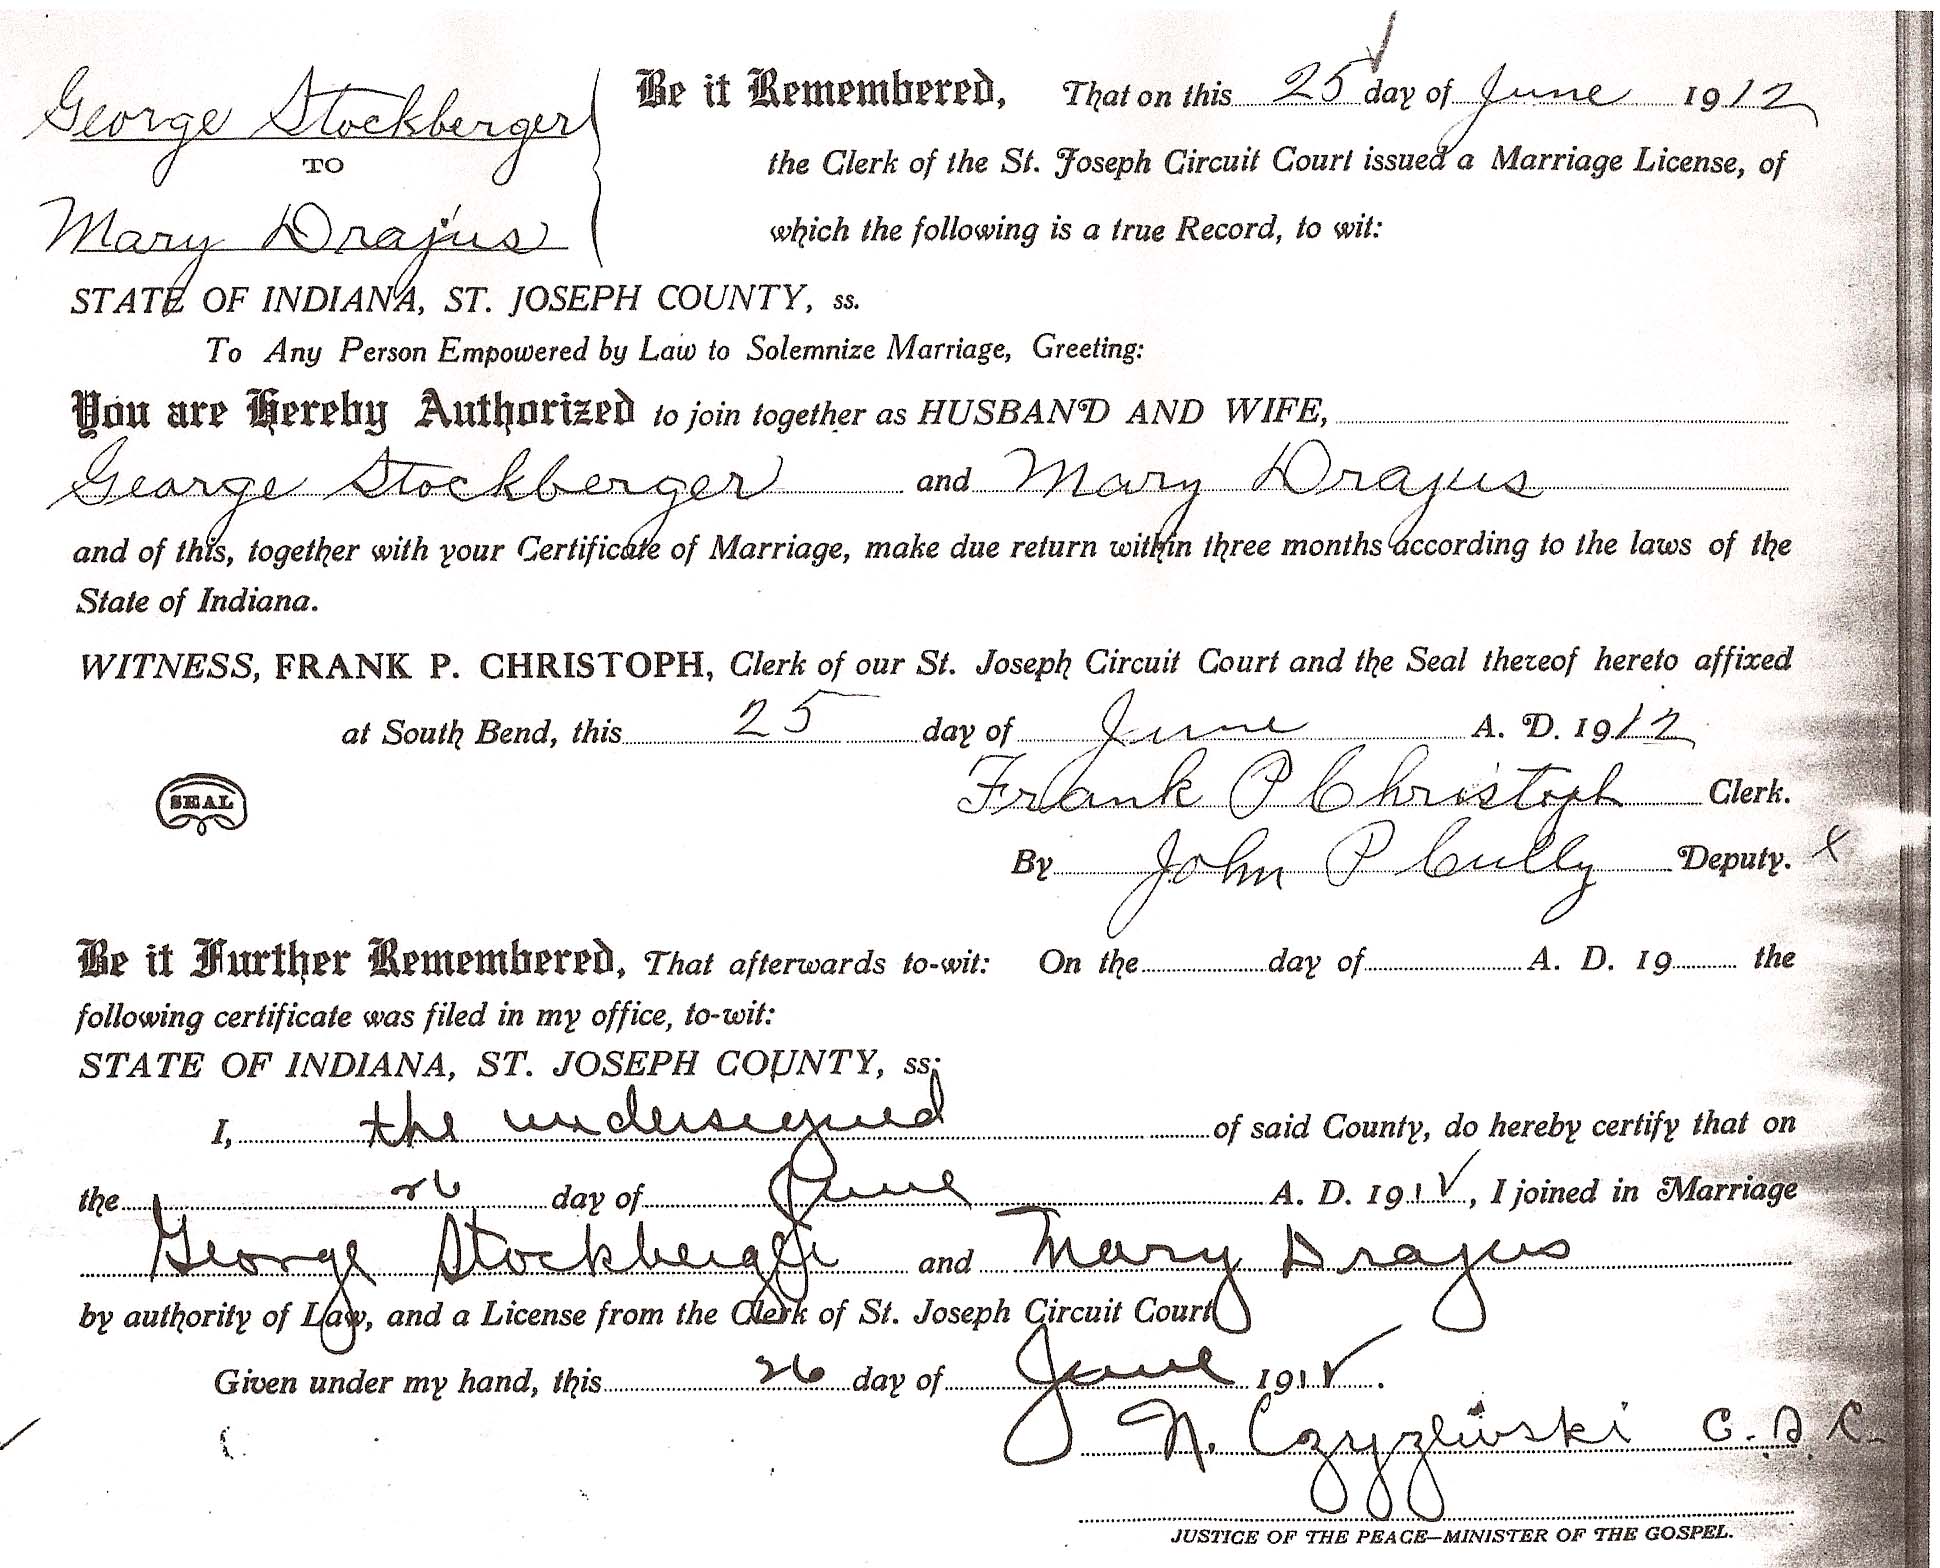 George Stockberger
TO
Mary Drajus
Be it Remembered, That on this 25 day of June 1912
the Clerk of the St. Joseph Circuit Court issued a Marriage License, of
which the following is a true Record, to wit:
STATE OF INDIANA, ST. JOSEPH COUNTY, ss.
To Any Person Empowered by Law to Solemnize Marriage, Greeting:
You are Hereby Authorized to join together as HUSBAND AND WIFE,
George Stockberger and Mary Drajus
and of this, together with your Certificate of Marriage, make due return within three months according to the laws of the
State of Indiana.
WITNESS, FRANK P. CHRISTOPH, Clerk of our St. Joseph Circuit Court and the Seal thereof hereto affixed
at South Bend, this 25 day of June A. D. 1912
SEAL
Frank P Christoph Clerk.
By John P Cully Deputy. x
Be it Further Remembered, That afterwards to-wit: On the day of A. D. 19 the
following certificate was filed in my office, to-wit:
STATE OF INDIANA, ST. JOSEPH COUNTY, ss;
I, the undersigned of said County, do hereby certify that on
the 26 day of June A. D. 1912, I joined in Marriage
George Stockberger and Mary Drajus
by authority of Law, and a License from the Clerk of St. Joseph Circuit Court
Given under my hand, this 26 day of June 1912.
N. Czyzewski C. S. C.
JUSTICE OF THE PEACE—MINISTER OF THE GOSPEL.